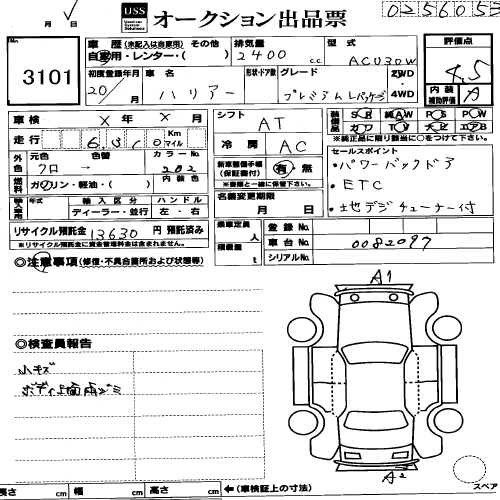 月 日
USS オークション出品票
No. 3101
車歴 (未記入は自家用) その他
自家用・レンター・( )
排気量 2400 c.c
型式 ACU30W
評価点 4.5
初度登録年月 20/ 月
車名 ハリアー
形状・ドア数
グレード プレミアムLパッケージ
2WD
4WD
内装補助評価 A
車検 X年X月
シフト AT
装備品 SR AW PS PW
カワ TV ナビ エアB
※純正品に限り該当に○をして下さい。
走行 Km マイル
冷房 AC
セールスポイント
・パワーバックドア
・ETC
・地デジチューナー付
外色 元色 色替 カラーNo.
クロ → 202
新車整備手帳(保証書付) 有・無
※書類と一緒に保管下さい。
燃料 ガソリン・軽油・( )
内装色
名義変更期限 月 日
輸入車用 年式 輸入区分 ハンドル
ディーラー・並行 左・右
乗車定員 人
積載量
登録No.
リサイクル預託金 13630 円 預託済み
※リサイクル預託金に資金管理料金は含まれません。
車台No. 0082097
シリアルNo.
◎注意事項(修復・不具合箇所および状態等)
A1
◎検査員報告
小キズ
A2
スペア
長さ cm 幅 cm 高さ cm ←(車検証上の寸法)